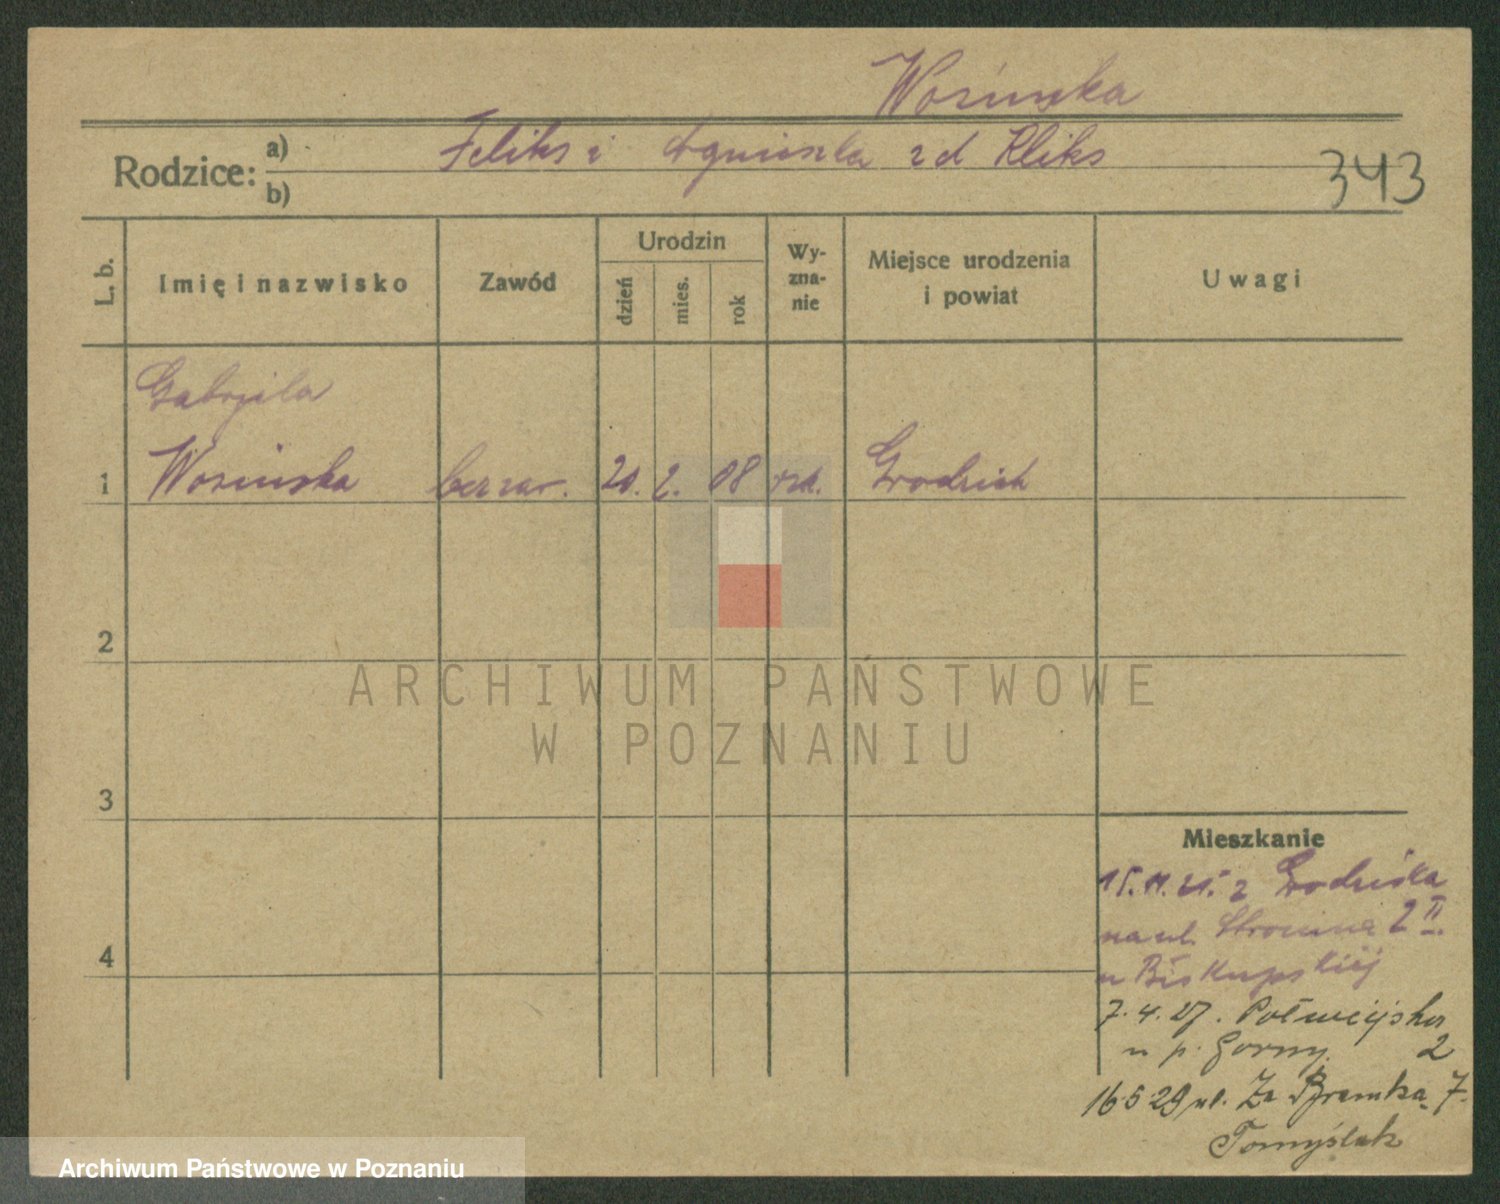 Wosińska
Rodzice: a) Feliks i Agnieszka z d Kliks
b)
343
L. b.
Imię i nazwisko
Zawód
Urodzin
dzień
mies.
rok
Wy-
zna-
nie
Miejsce urodzenia
i powiat
Uwagi
Gabryela
1 Wosińska bez zaw. 20. 2. 08 rzk. Grodzisk
2
3
4
ARCHIWUM PAŃSTWOWE
W POZNANIU
Mieszkanie
15.11.25. z Grodziska
na ul. Stroma 2 II.
u Biskupskiej
7.4.27. Półwiejska
u p. Górny. 2
16 5 29 ul. Za Bramką 7.
Tomyślak
Archiwum Państwowe w Poznaniu